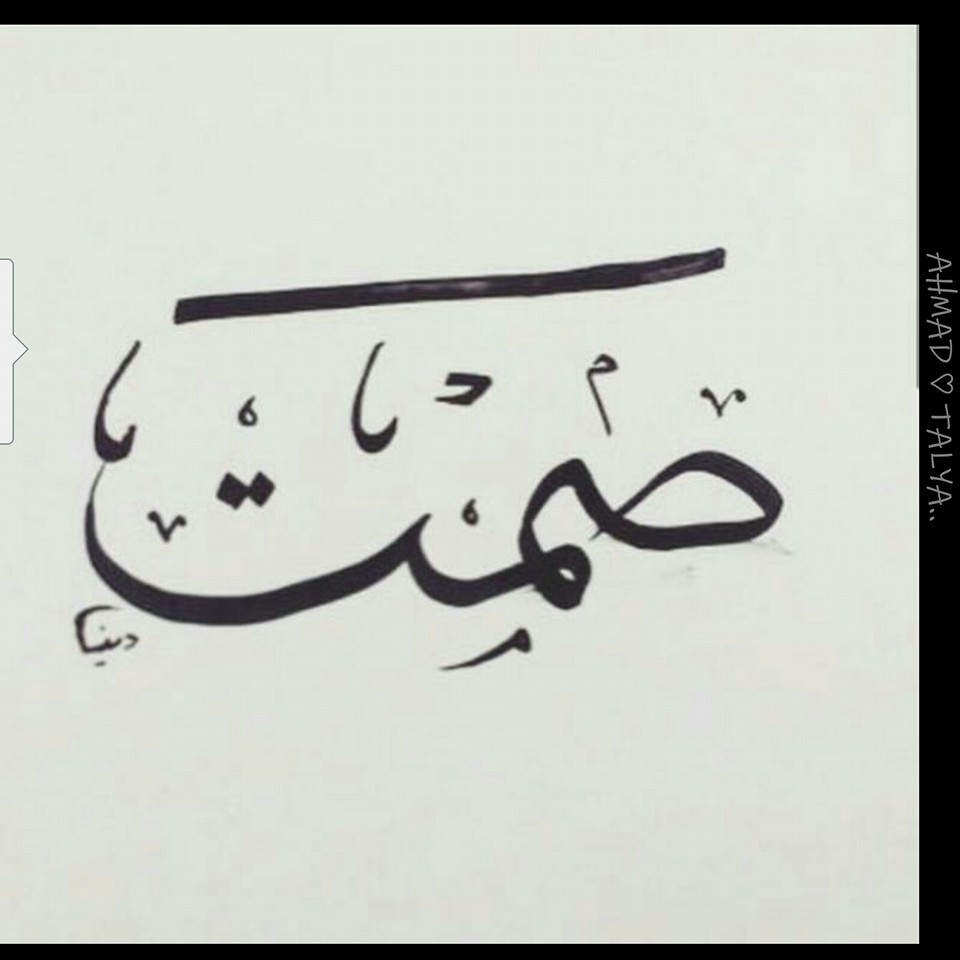 صمت
دينا
AHMAD ♡ TALYA..